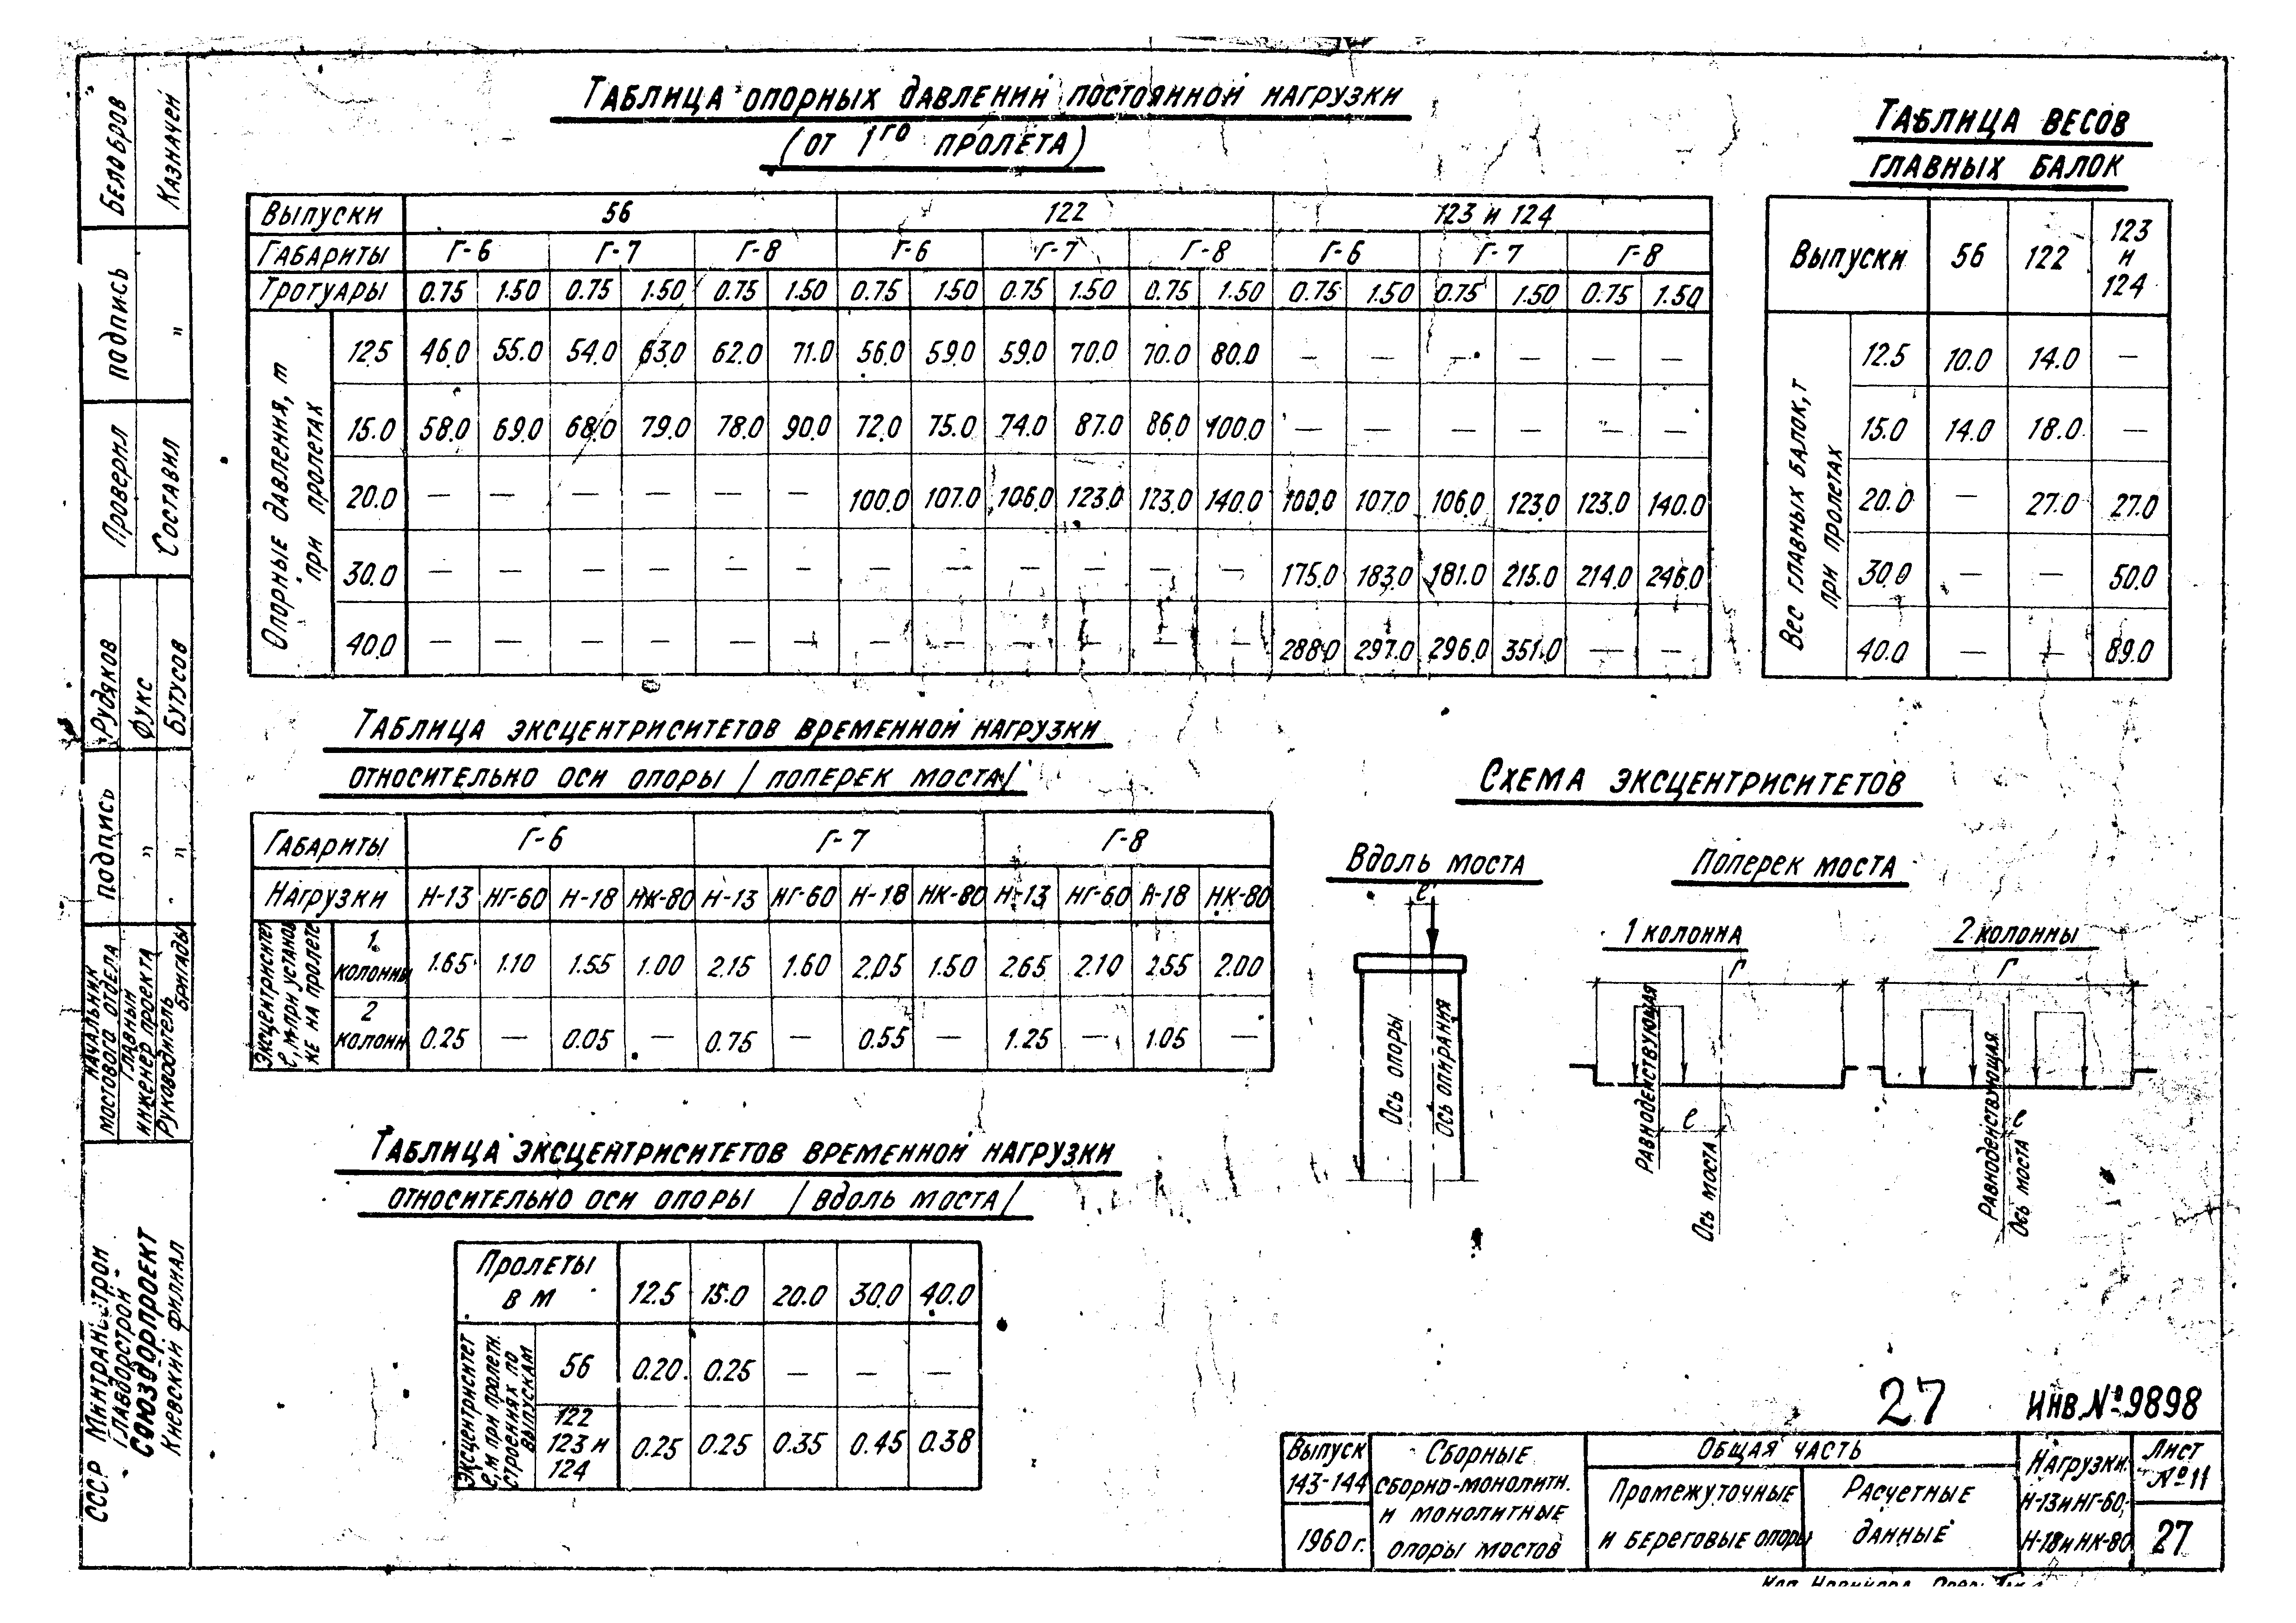 Таблица опорных давлений постоянной нагрузки
(от 1го пролета)
Выпуски 56 122 123 и 124
Габариты Г-6 Г-7 Г-8 Г-6 Г-7 Г-8 Г-6 Г-7 Г-8
Тротуары 0.75 1.50 0.75 1.50 0.75 1.50 0.75 1.50 0.75 1.50 0.75 1.50 0.75 1.50 0.75 1.50 0.75 1.50
Опорные давления, т
при пролетах
12.5 46.0 55.0 54.0 63.0 62.0 71.0 56.0 59.0 59.0 70.0 70.0 80.0 — — — — — —
15.0 58.0 69.0 68.0 79.0 78.0 90.0 72.0 75.0 74.0 87.0 86.0 100.0 — — — — — —
20.0 — — — — — — 100.0 107.0 106.0 123.0 123.0 140.0 100.0 107.0 106.0 123.0 123.0 140.0
30.0 — — — — — — — — — — — — 175.0 183.0 181.0 215.0 214.0 246.0
40.0 — — — — — — — — — — — — 288.0 297.0 296.0 351.0 — —
Таблица весов
главных балок
Выпуски 56 122 123 и 124
Вес главных балок, т
при пролетах
12.5 10.0 14.0 —
15.0 14.0 18.0 —
20.0 — 27.0 27.0
30.0 — — 50.0
40.0 — — 89.0
Таблица эксцентриситетов временной нагрузки
относительно оси опоры /поперек моста/
Габариты Г-6 Г-7 Г-8
Нагрузки Н-13 НГ-60 Н-18 НК-80 Н-13 НГ-60 Н-18 НК-80 Н-13 НГ-60 Н-18 НК-80
Эксцентриситет
е, м при установ
же на пролете
1 колонны 1.65 1.10 1.55 1.00 2.15 1.60 2.05 1.50 2.65 2.10 2.55 2.00
2 колонн 0.25 — 0.05 — 0.75 — 0.55 — 1.25 — 1.05 —
Схема эксцентриситетов
Вдоль моста
е
Ось опоры
Ось опирания
Поперек моста
1 колонна
Г
Равнодействующая
е
Ось моста
2 колонны
Г
Равнодействующая
е
Ось моста
Таблица эксцентриситетов временной нагрузки
относительно оси опоры /вдоль моста/
Пролеты
в м
12.5 15.0 20.0 30.0 40.0
Эксцентриситет
е, м при пролетн.
строениях по
выпускам
56 0.20 0.25 — — —
122
123 и
124
0.25 0.25 0.35 0.45 0.38
27
Инв. № 9898
Выпуск
143-144
1960 г.
Сборные
сборно-монолитн.
и монолитные
опоры мостов
Общая часть
Промежуточные
и береговые опоры
Расчетные
данные
Нагрузки
Н-13 и НГ-60,
Н-18 и НК-80
Лист
№ 11
27
Белобров
Казначей
подпись
"
Проверил
Составил
Рудяков
Фукс
Бутусов
подпись
"
"
Начальник
мостового отдела
Главный
инженер проекта
Руководитель
бригады
СССР Минтрансстрой
Главдорстрой
Союздорпроект
Киевский филиал